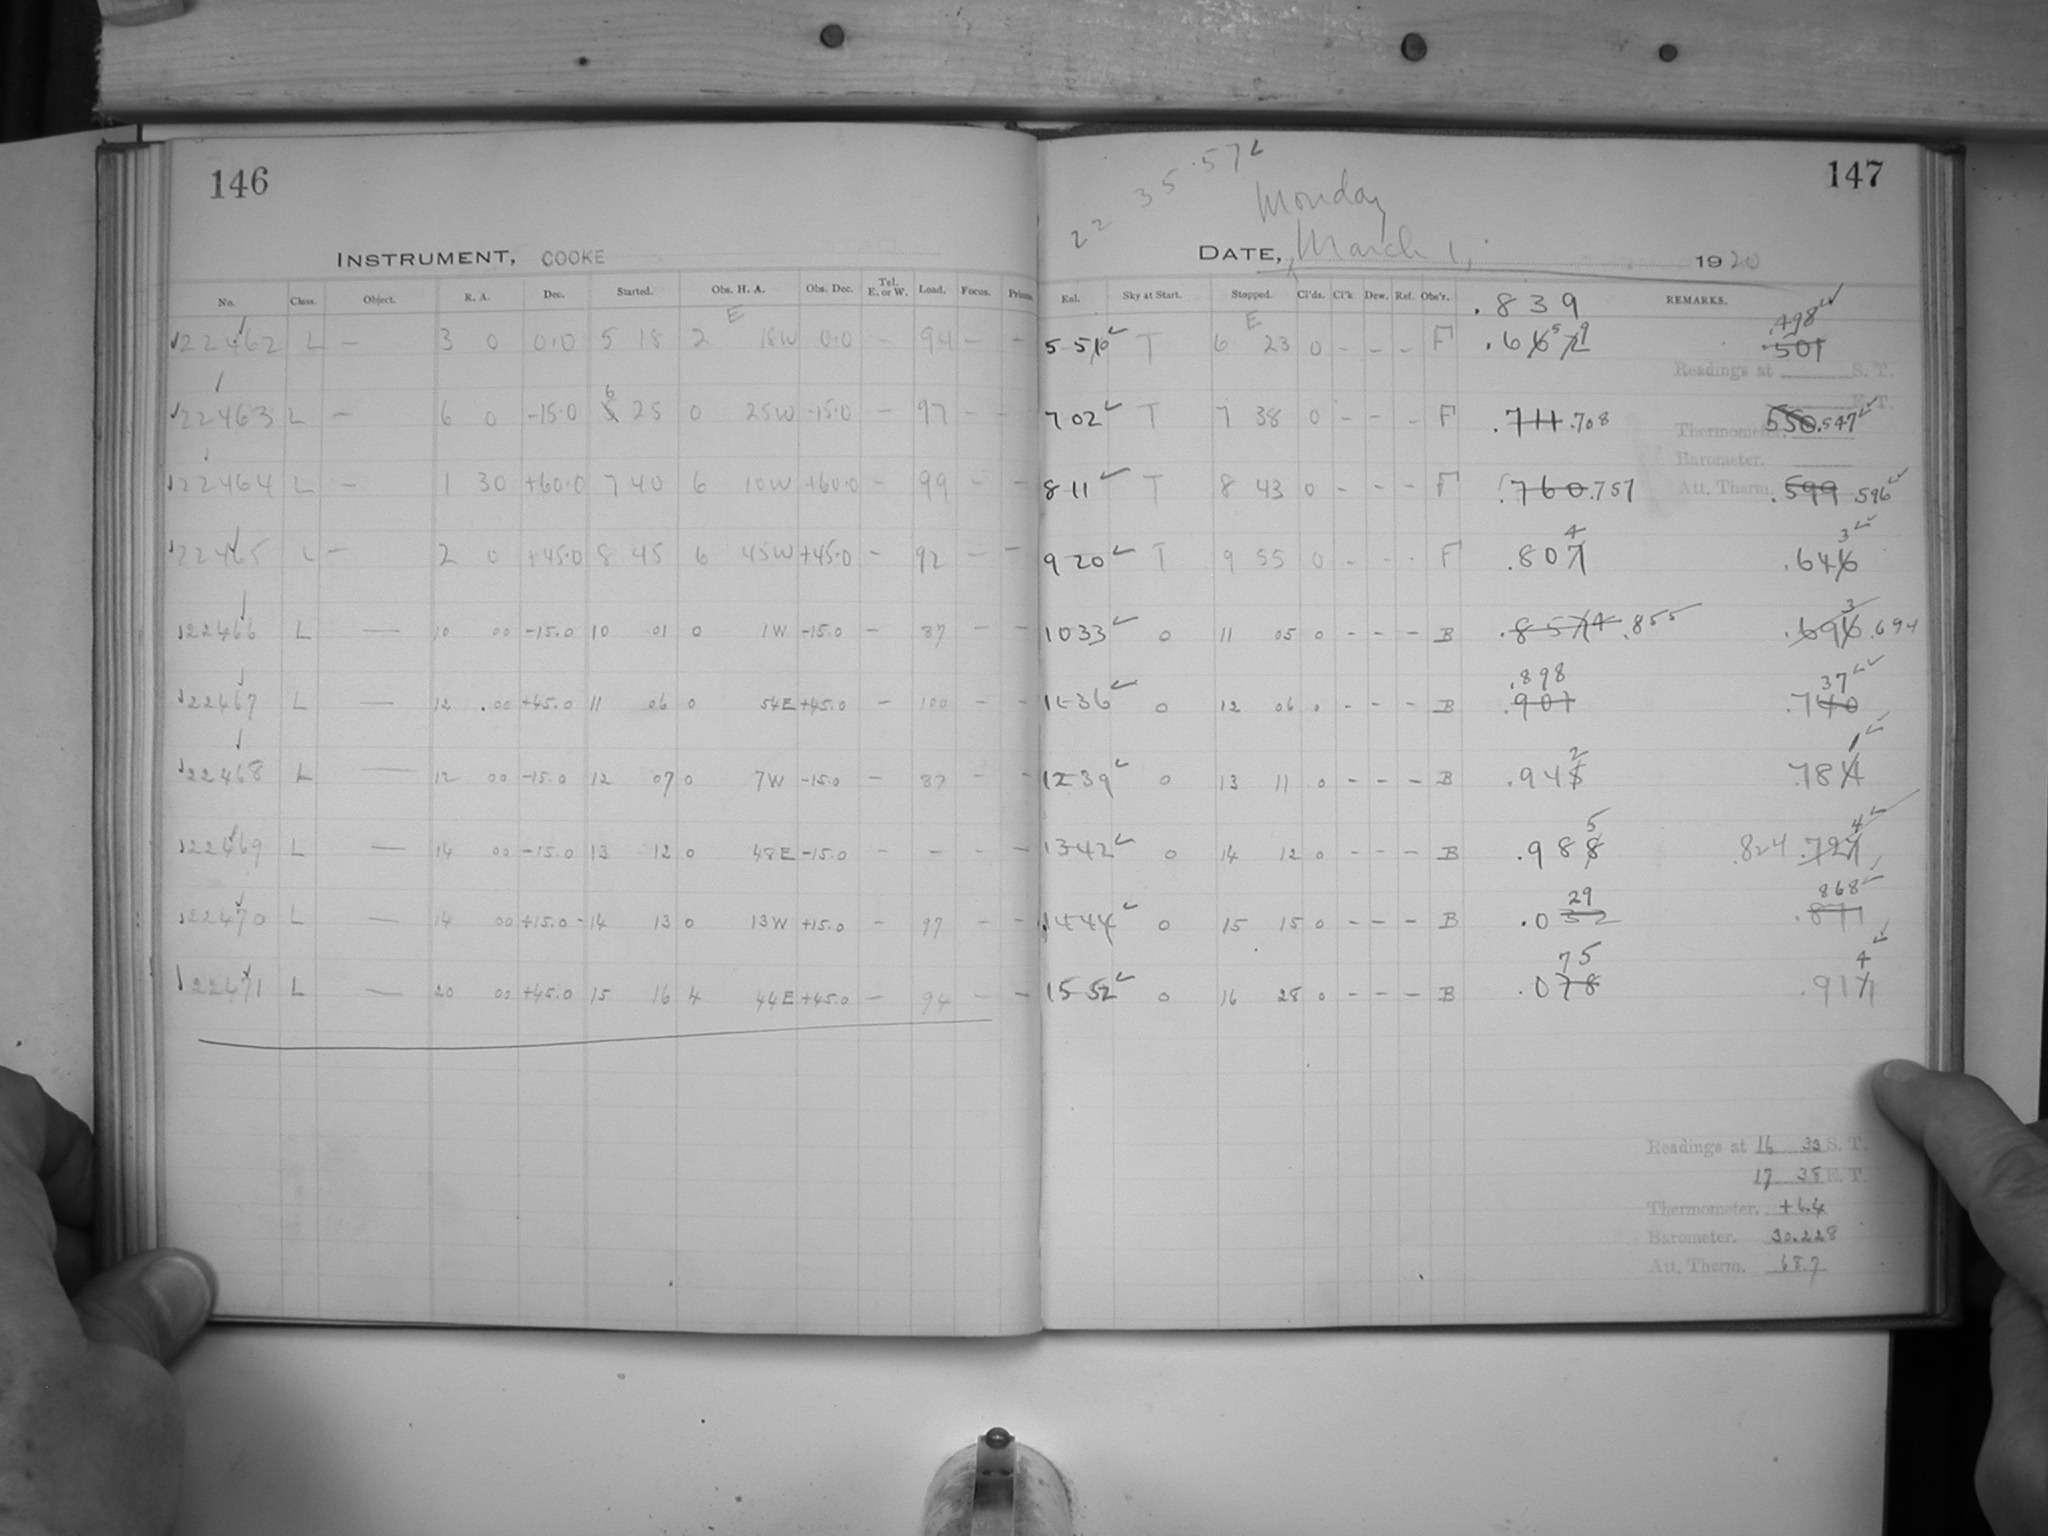 146
INSTRUMENT, COOKE
No. Class. Object. R. A. Dec. Started. Obs. H. A. Obs. Dec. Tel. E. or W. Load. Focus. Prism.
22462 L — 3 0 0.0 5 18 2 E 18W 0.0 — 94 — —
22463 L — 6 0 -15.0 6 25 0 25W -15.0 — 97 — —
22464 L — 1 30 +60.0 7 40 6 10W +60.0 — 99 — —
22465 L — 2 0 +45.0 8 45 6 45W +45.0 — 92 — —
22466 L — 10 00 -15.0 10 01 0 1W -15.0 — 87 — —
22467 L — 12 .00 +45.0 11 06 0 54E +45.0 — 100 — —
22468 L — 12 00 -15.0 12 07 0 7W -15.0 — 87 — —
22469 L — 14 00 -15.0 13 12 0 48E -15.0 — — — —
22470 L — 14 00 +15.0 14 13 0 13W +15.0 — 97 — —
22471 L — 20 00 +45.0 15 16 4 44E +45.0 — 94 — —
147
22 35.57
Monday
DATE, March 1, 1920
Eql. Sky at Start. Stopped. Cl'ds. Cl'k Dew. Ref. Obs'r. REMARKS.
.839
5 51 T 6 E 23 0 - - - F .659 .498 .501
Readings at S. T.
E. T.
7 02 T 7 38 0 - - - F .711 .708 550 .547
Thermometer.
Barometer.
8 11 T 8 43 0 - - - F .760 .757 Att. Therm. .599 596
9 20 T 9 55 0 - - - F .804 .643
10 33 0 11 05 0 - - - B .857 4 .855 .696 3 .694
11 36 0 12 06 0 - - - B .898 .901 .740 37
12 39 0 13 11 0 - - - B .942 .781
13 42 0 14 12 0 - - - B .985 .824 .727 4
14 44 0 15 15 0 - - - B .032 29 868 .871
15 52 0 16 28 0 - - - B .078 75 .914
Readings at 16 33 S. T.
17 38 E. T.
Thermometer. +6.4
Barometer. 30.228
Att. Therm. 68.7